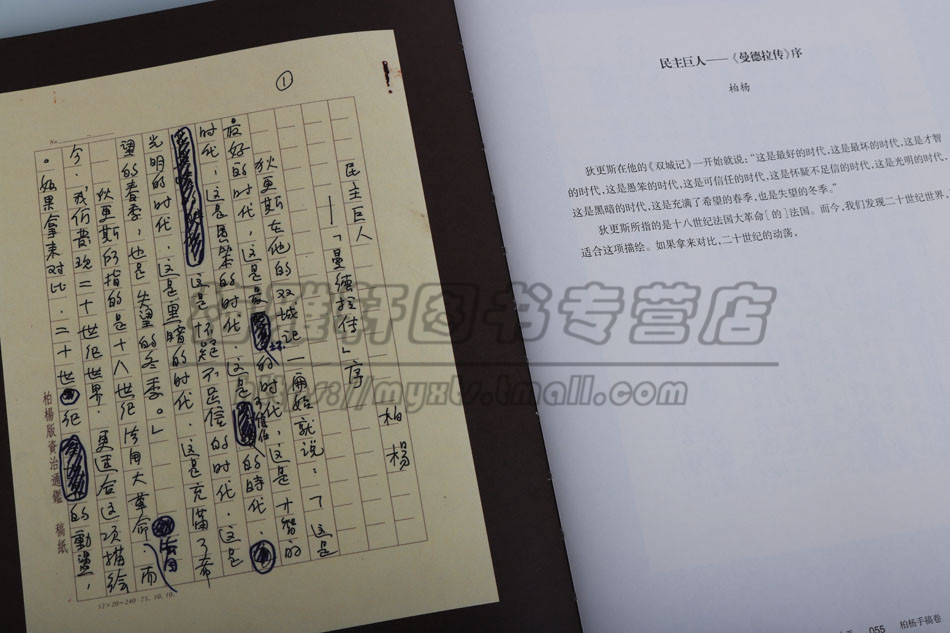 ①
No.
民主巨人 柏楊
——「曼德拉传」序
狄更斯在他的双城记一開始就说：「這是
最好的时代，這是最坏的时代，這是才智的
时代，這是愚笨的时代，這是可信任的時代，
這是怀疑不足信的时代，這是
光明的时代，這是黑暗的时代，這是充滿了希
望的春季，也是失望的冬季。」
狄更斯所指的是十八世纪法国大革命法国而
今，我们發现二十世纪世界，更适合这项描绘
。如果拿来对比，二十世纪的動盪，
柏楊版資治通鑑 稿紙
12×20=240 75.10.10.
民主巨人——《曼德拉传》序
柏杨
狄更斯在他的《双城记》一开始就说：“这是最好的时代，这是最坏的时代，这是才智
的时代，这是愚笨的时代，这是可信任的时代，这是怀疑不足信的时代，这是光明的时代，
这是黑暗的时代，这是充满了希望的春季，也是失望的冬季。”
狄更斯所指的是十八世纪法国大革命［的］法国。而今，我们发现二十世纪世界，
适合这项描绘。如果拿来对比，二十世纪的动荡，
055 柏杨手稿卷
轩图书专营店
https://myxts.tmall.com